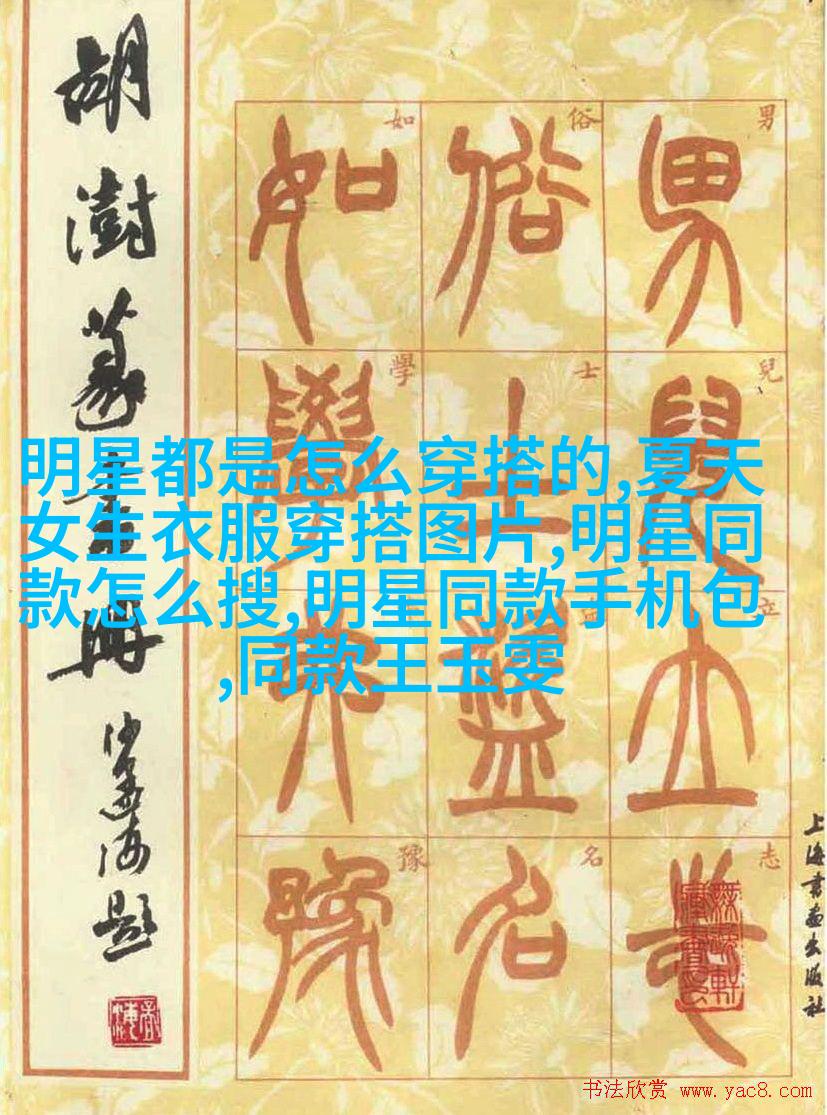 胡澍篆書冊
沙孟海題
男兒立志
俗士名
如學豫
男兒立志
俗士名
如學豫
上海書畫出版社
明星都是怎么穿搭的,夏天
女生衣服穿搭图片,明星同
款怎么搜,明星同款手机包
,同款王玉雯
书法欣赏 www.yac8.com